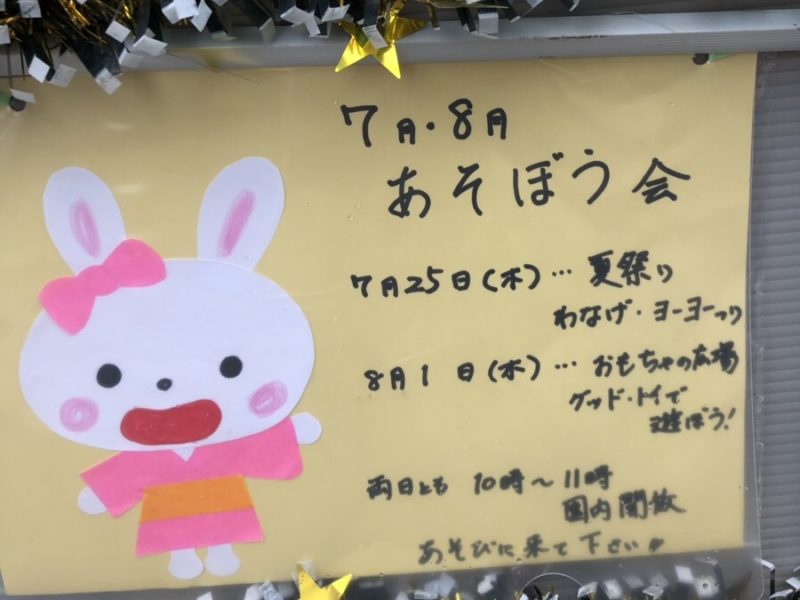 7月・8月
あそぼう会
7月25日(木)… 夏祭り
わなげ・ヨーヨーつり
8月1日(木)… おもちゃの広場
グッド・トイで
遊ぼう!
両日とも 10時〜11時
園内開放
あそびに来て下さい